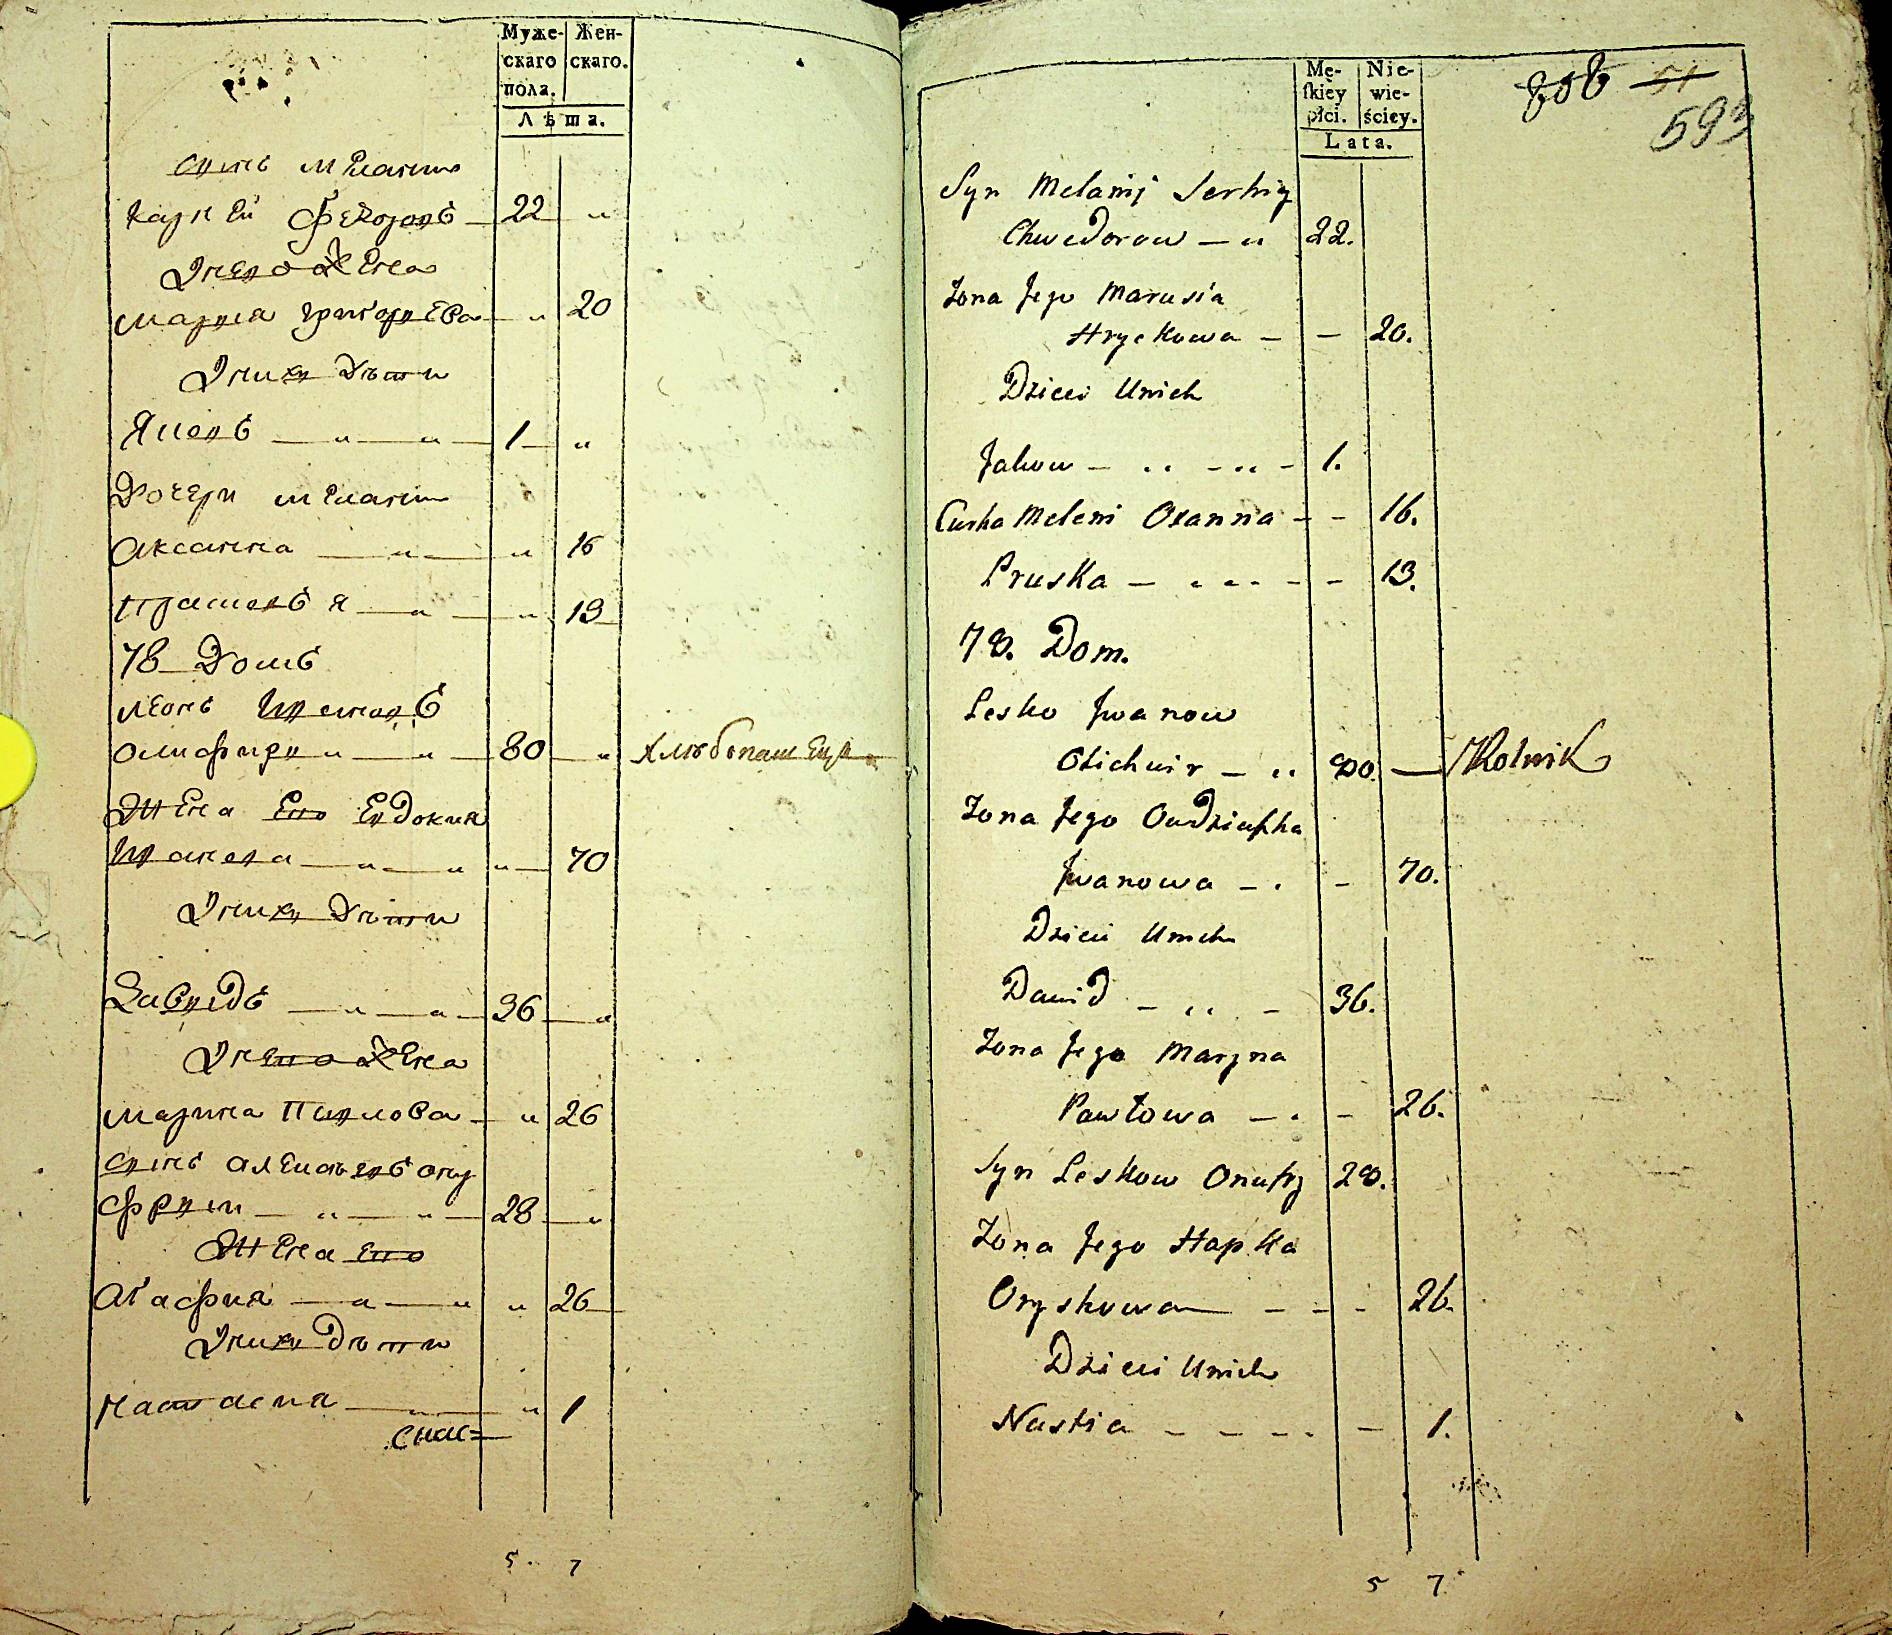 Муже-
скаго
пола.
Жен-
скаго.
Лѣта.
сынъ мелании
Федоровъ — 22 — „
Унево Жена
Маруся григорьева — „ 20
Унихъ Дѣти
Яковъ — „ — „ — 1 — „
Дочери мелании
Аксанна — „ — „ 16
Прасковья — „ — „ 13
78 Домъ
леонъ Ивановъ
олифиръ — „ — 80 — „ Хлѣбопашецъ
Жена Его Евдокия
Иванова — „ — „ „ — 70
Унихъ Дѣти
Давыдъ — „ — „ — 36 — „
Унево Жена
Марина Павлова — „ 26
сынъ ону
фрый — „ — „ — 28 — „
Жена Его
Агафия — „ — „ „ 26
Унихъ Дѣти
Настасия — „ „ 1
5 . 7
Mę-
skiey
płci.
Nie-
wie-
ściey.
Lata.
51
593
Syn Melanij Serhiy
Chwedorow — „ 22.
Żona Jego Marusia
Hryckowa — — 20.
Dzieci Unich
Jakow — „ — „ — 1.
Curka Meleni Oxanna — — 16.
Pruska — — — 13.
78. Dom.
Lesko Jwanow
Olichwir — „ 80. — Rolnik
Żona Jego Oudziuszka
Jwanowa — . — 70.
Dzieci Unich
Dawid — „ — 36.
Żona Jego Maryna
Pawłowa — . — 26.
Syn Leskow Onufry 28.
Żona Jego Hapka
Oryskowa — — — 26.
Dzieci Unich
Nastia — — — — 1.
5 7